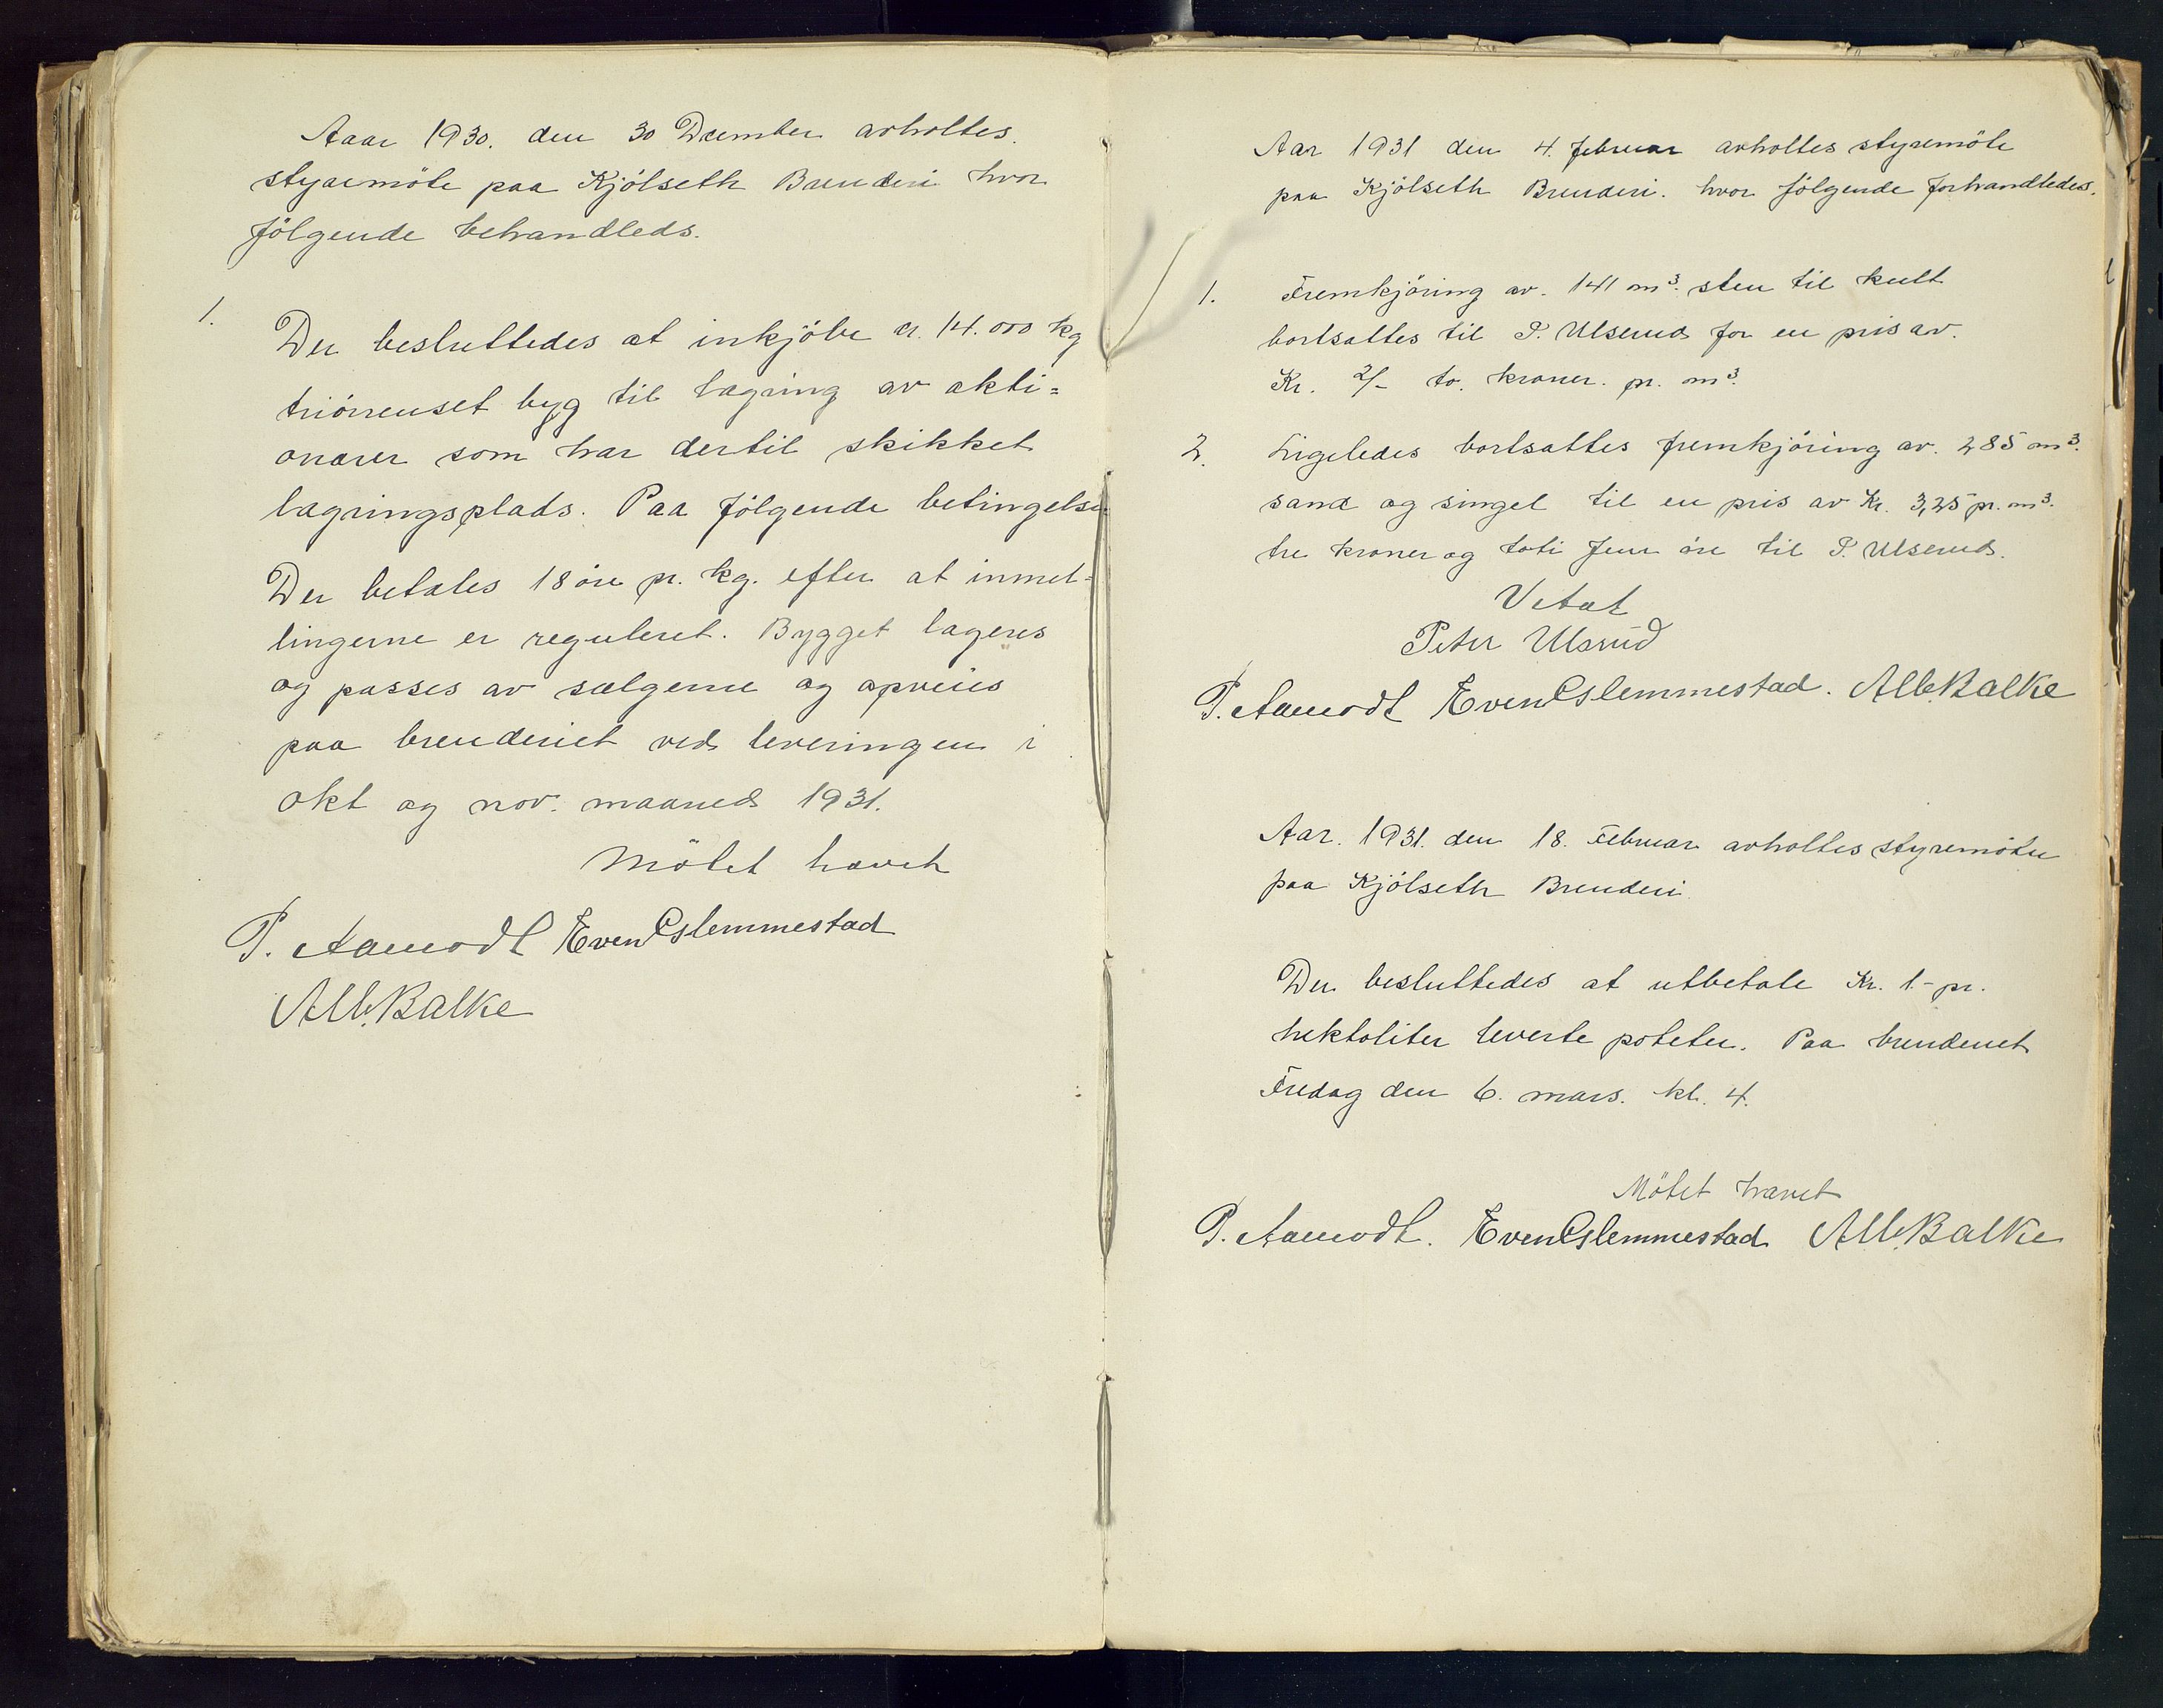 Aaar 1930. den 30 December avholtes.
styremöte paa Kjölseth Brenderi hvor
følgende behandleds.
1.
Der besluttedes at inkjöbe ca. 14.000 kg
triörrenset byg til lagring av akti=
onærer som har dertil skikket
lagringsplads. Paa følgende betingelse
Der betales 18 öre pr. kg. efter at inmel=
lingerne er reguleret. Bygget lageres
og passes av sælgerne og opveies
paa brenderiet ved leveringen i
okt og nov. maaned 1931.
Mötet hævet
P. Aamodt Even Eslemmestad
Alb. Balke
Aar 1931 den 4. februar avholtes styremöte
paa Kjölseth Brenderi. hvor følgende forhandledes.
1. Fremkjöring av. 141 m³. sten til kult
bortsattes til P. Ulserud for en pris av.
Kr. 2/- to. kroner. pr. m³.
2. Ligeledes bortsattes fremkjöring av. 285 m³.
sand og singel til en pris av Kr. 3,25 pr. m³.
tre kroner og toti fem öre til P. Ulserud.
Vetat
Peter Ulsrud
P. Aamodt Even Eslemmestad. Alb. Balke
Aar. 1931. den 18. Februar avholtes styremöte
paa Kjölseth Brenderi
Der besluttedes at utbetale Kr. 1- pr.
hektoliter leverte poteter. Paa brenderiet
Fredag den 6. mars. kl. 4.
Mötet hævet
P. Aamodt. Even Eslemmestad Alb. Balke